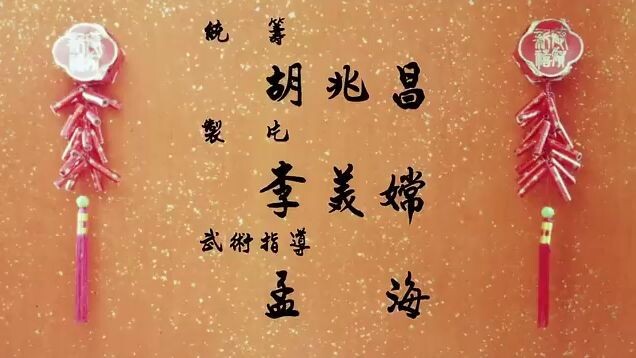 統籌
胡兆昌
製片
李美嫦
武術指導
孟海